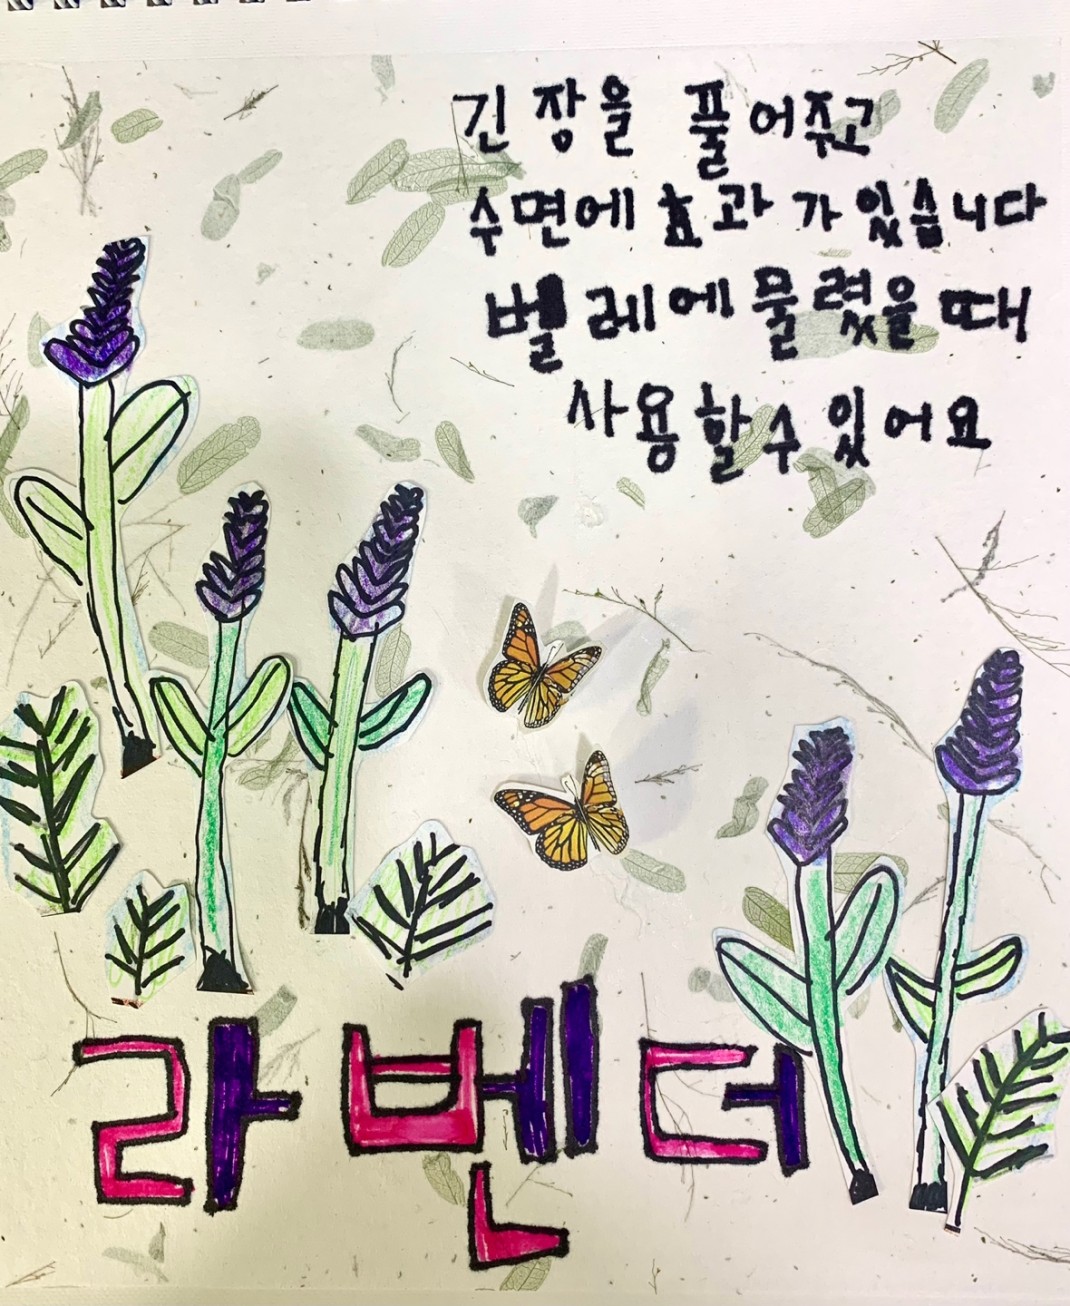 긴장을 풀어주고
수면에 효과가 있습니다
벌레에 물렸을 때
사용할 수 있어요
라벤더